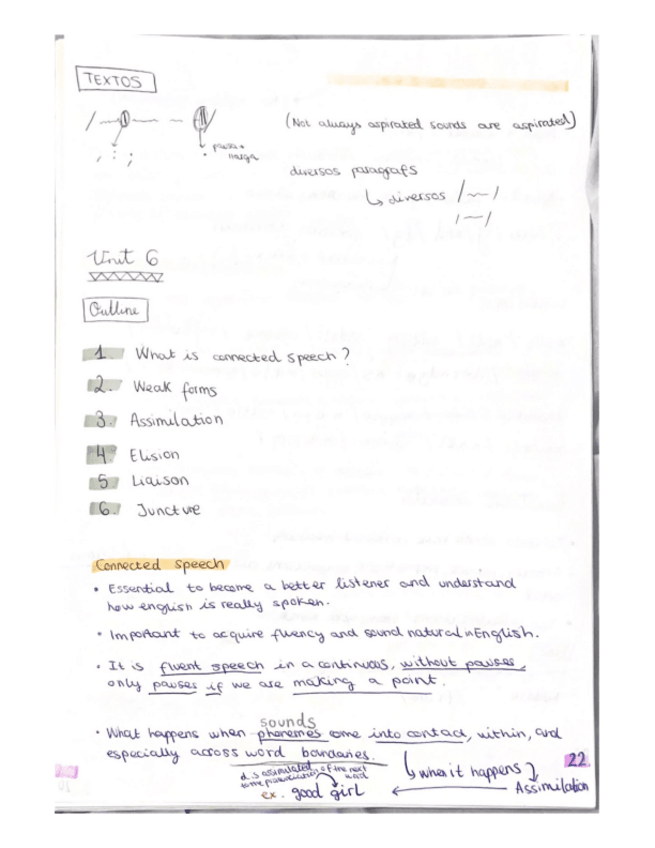 TEXTOS
(Not always aspirated sounds are aspirated)
pausa +
llarga
, : ;
diversos paragrafs
↳ diversos /~/
/~/
Unit 6
Outline
1. What is connected speech?
2. Weak forms
3. Assimilation
4. Elision
5. Liaison
6. Juncture
Connected speech
• Essential to become a better listener and understand
how english is really spoken.
• Important to acquire fluency and sound natural in English.
• It is fluent speech in a continuous, without pauses,
only pauses if we are making a point.
sounds
• What happens when phonemes come into contact, within, and
especially across word boundaries.
↳ when it happens
Assimilation
d is assimilated
to the pronunciation of the next
word
ex. good girl
22